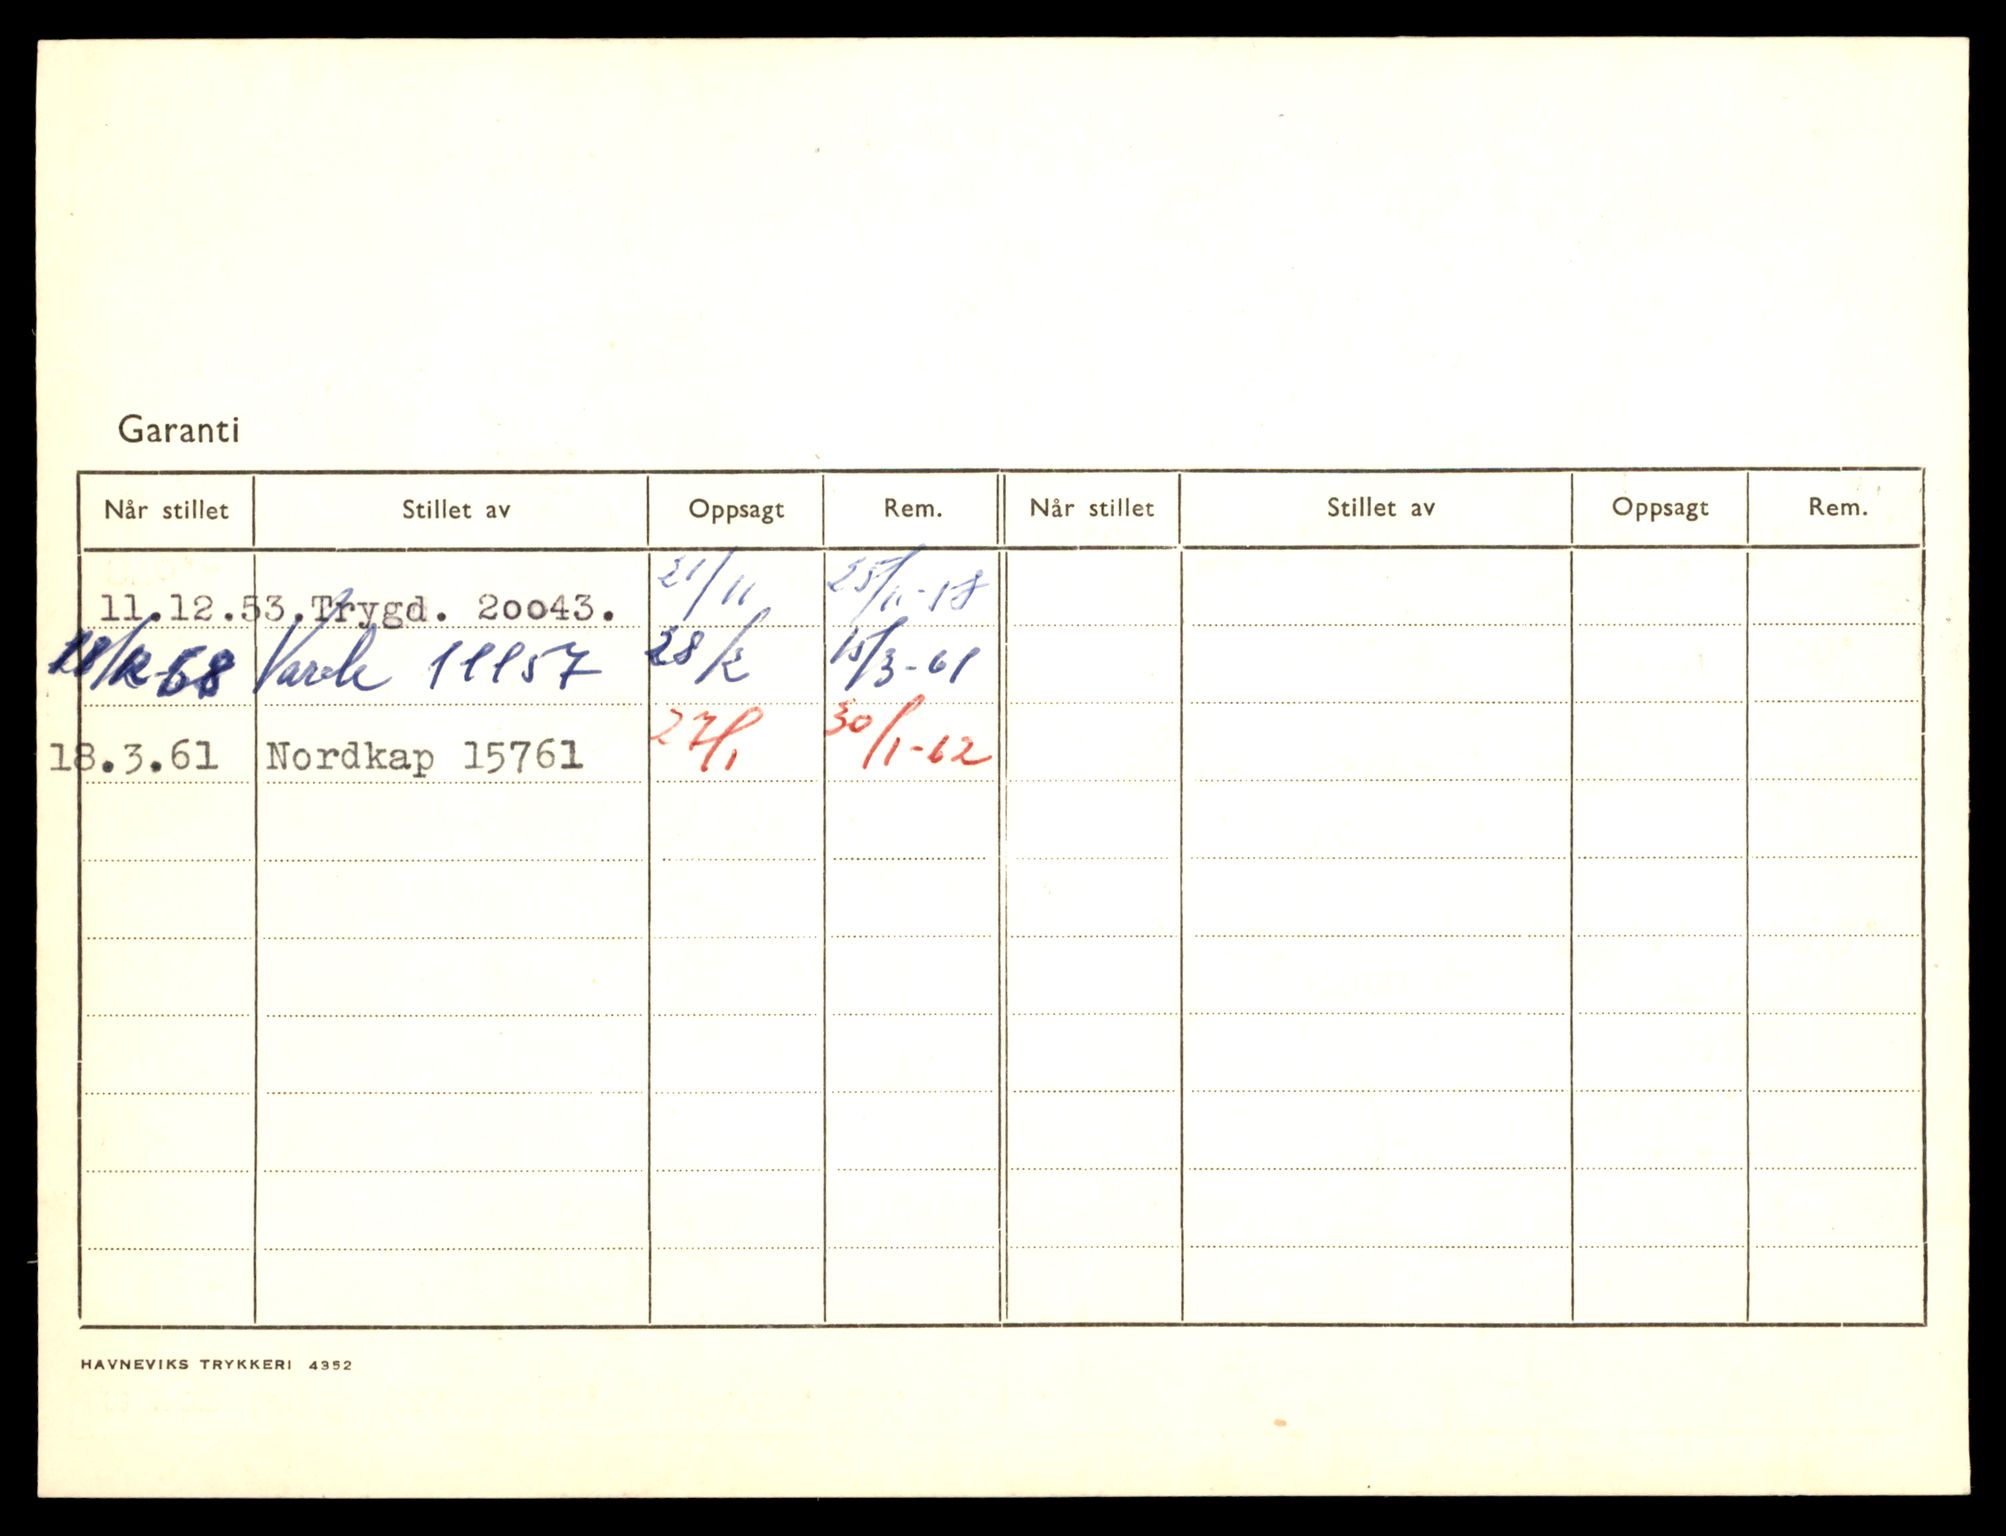 Garanti
Når stillet Stillet av Oppsagt Rem. Når stillet Stillet av Oppsagt Rem.
11.12.53. Trygd. 20043. 21/11 25/11-58
Varde 11157 28/2 15/3-61
18.3.61 Nordkap 15761 27/1 30/1-62
HAVNEVIKS TRYKKERI 4352